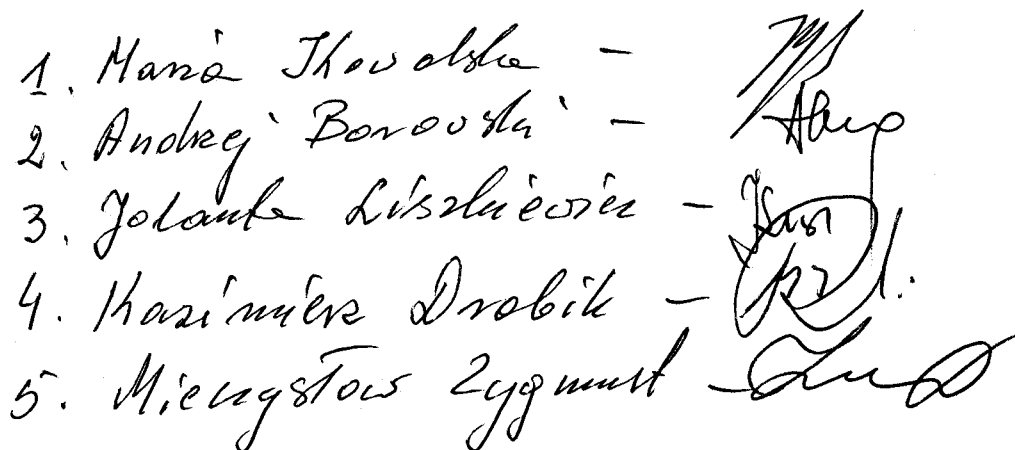 1. Maria Kowalska -
2. Andrzej Borowski -
3. Jolanta Liszkiewicz -
4. Kazimierz Drabik -
5. Mieczysław Zygmunt -